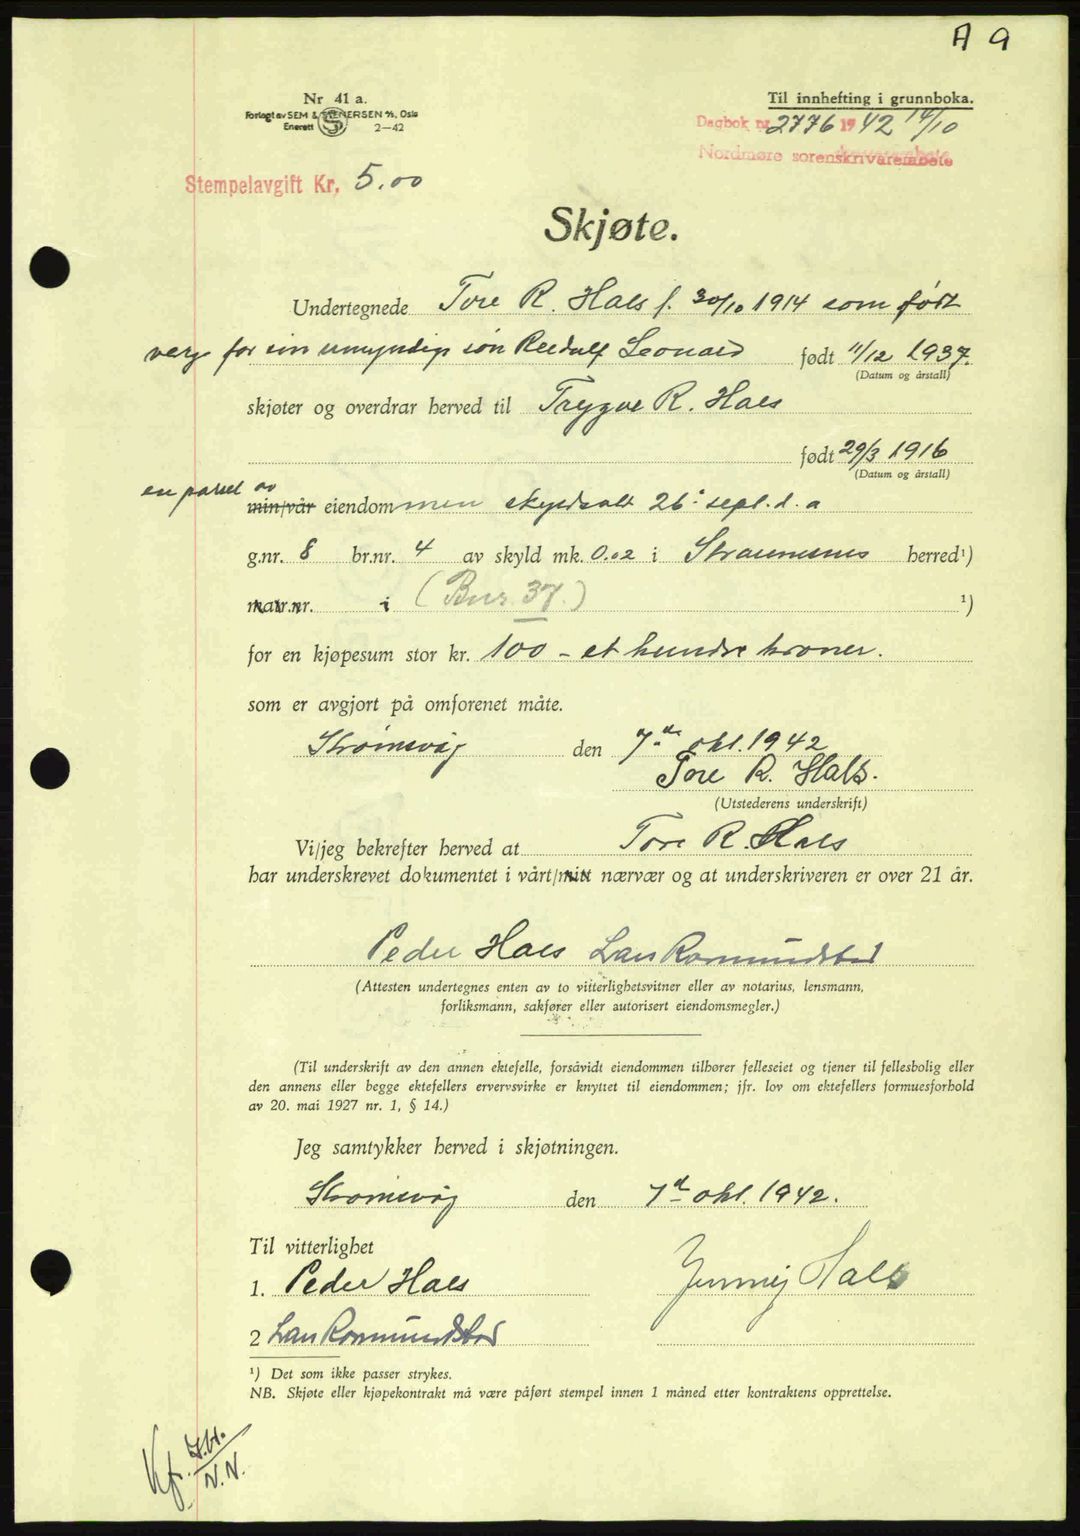 A 9
Nr 41 a.
Forlagt av SEM & STENERSEN A/S, Oslo
Enerett S 2-42
Til innhefting i grunnboka.
Dagbok nr. 2776 1942 14/10
Nordmøre sorenskrivarembete
Stempelavgift Kr. 5.00
Skjøte.
Undertegnede Tore R. Hals f. 30/10 1914 som født
verge for sin umyndige søn Leonard født 11/12 1937.
(Datum og årstall)
skjøter og overdrar herved til Trygve R. Hals
født 29/3 1916
(Datum og årstall)
en parsel av
min/vår eiendommen skyldsatt 26. sept. d. a
g.nr. 8 br.nr. 4 av skyld mk. 0.02 i Straumsnes herred¹)
matr.nr. i (Bnr. 37.) ¹)
for en kjøpesum stor kr. 100 - et hundre kroner.
som er avgjort på omforenet måte.
Strømsvåg den 7de okt. 1942
Tore R. Hals.
(Utstederens underskrift)
Vi/jeg bekrefter herved at Tore R. Hals
har underskrevet dokumentet i vårt/mitt nærvær og at underskriveren er over 21 år.
Peder Hals Lars Romundstad
(Attesten undertegnes enten av to vitterlighetsvitner eller av notarius, lensmann,
forliksmann, sakfører eller autorisert eiendomsmegler.)
(Til underskrift av den annen ektefelle, forsåvidt eiendommen tilhører felleseiet og tjener til fellesbolig eller
den annens eller begge ektefellers ervervsvirke er knyttet til eiendommen; jfr. lov om ektefellers formuesforhold
av 20. mai 1927 nr. 1, § 14.)
Jeg samtykker herved i skjøtningen.
Strømsvåg den 7de okt. 1942.
Til vitterlighet
1. Peder Hals Jenny Hals
2 Lars Romundstad
¹) Det som ikke passer strykes.
NB. Skjøte eller kjøpekontrakt må være påført stempel innen 1 måned etter kontraktens opprettelse.
Kf.
N.N.